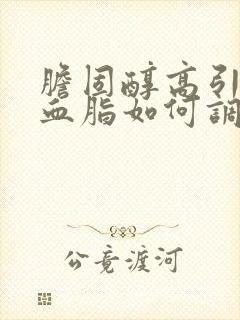 膽固醇高引
血脂如何調
公竟渡河